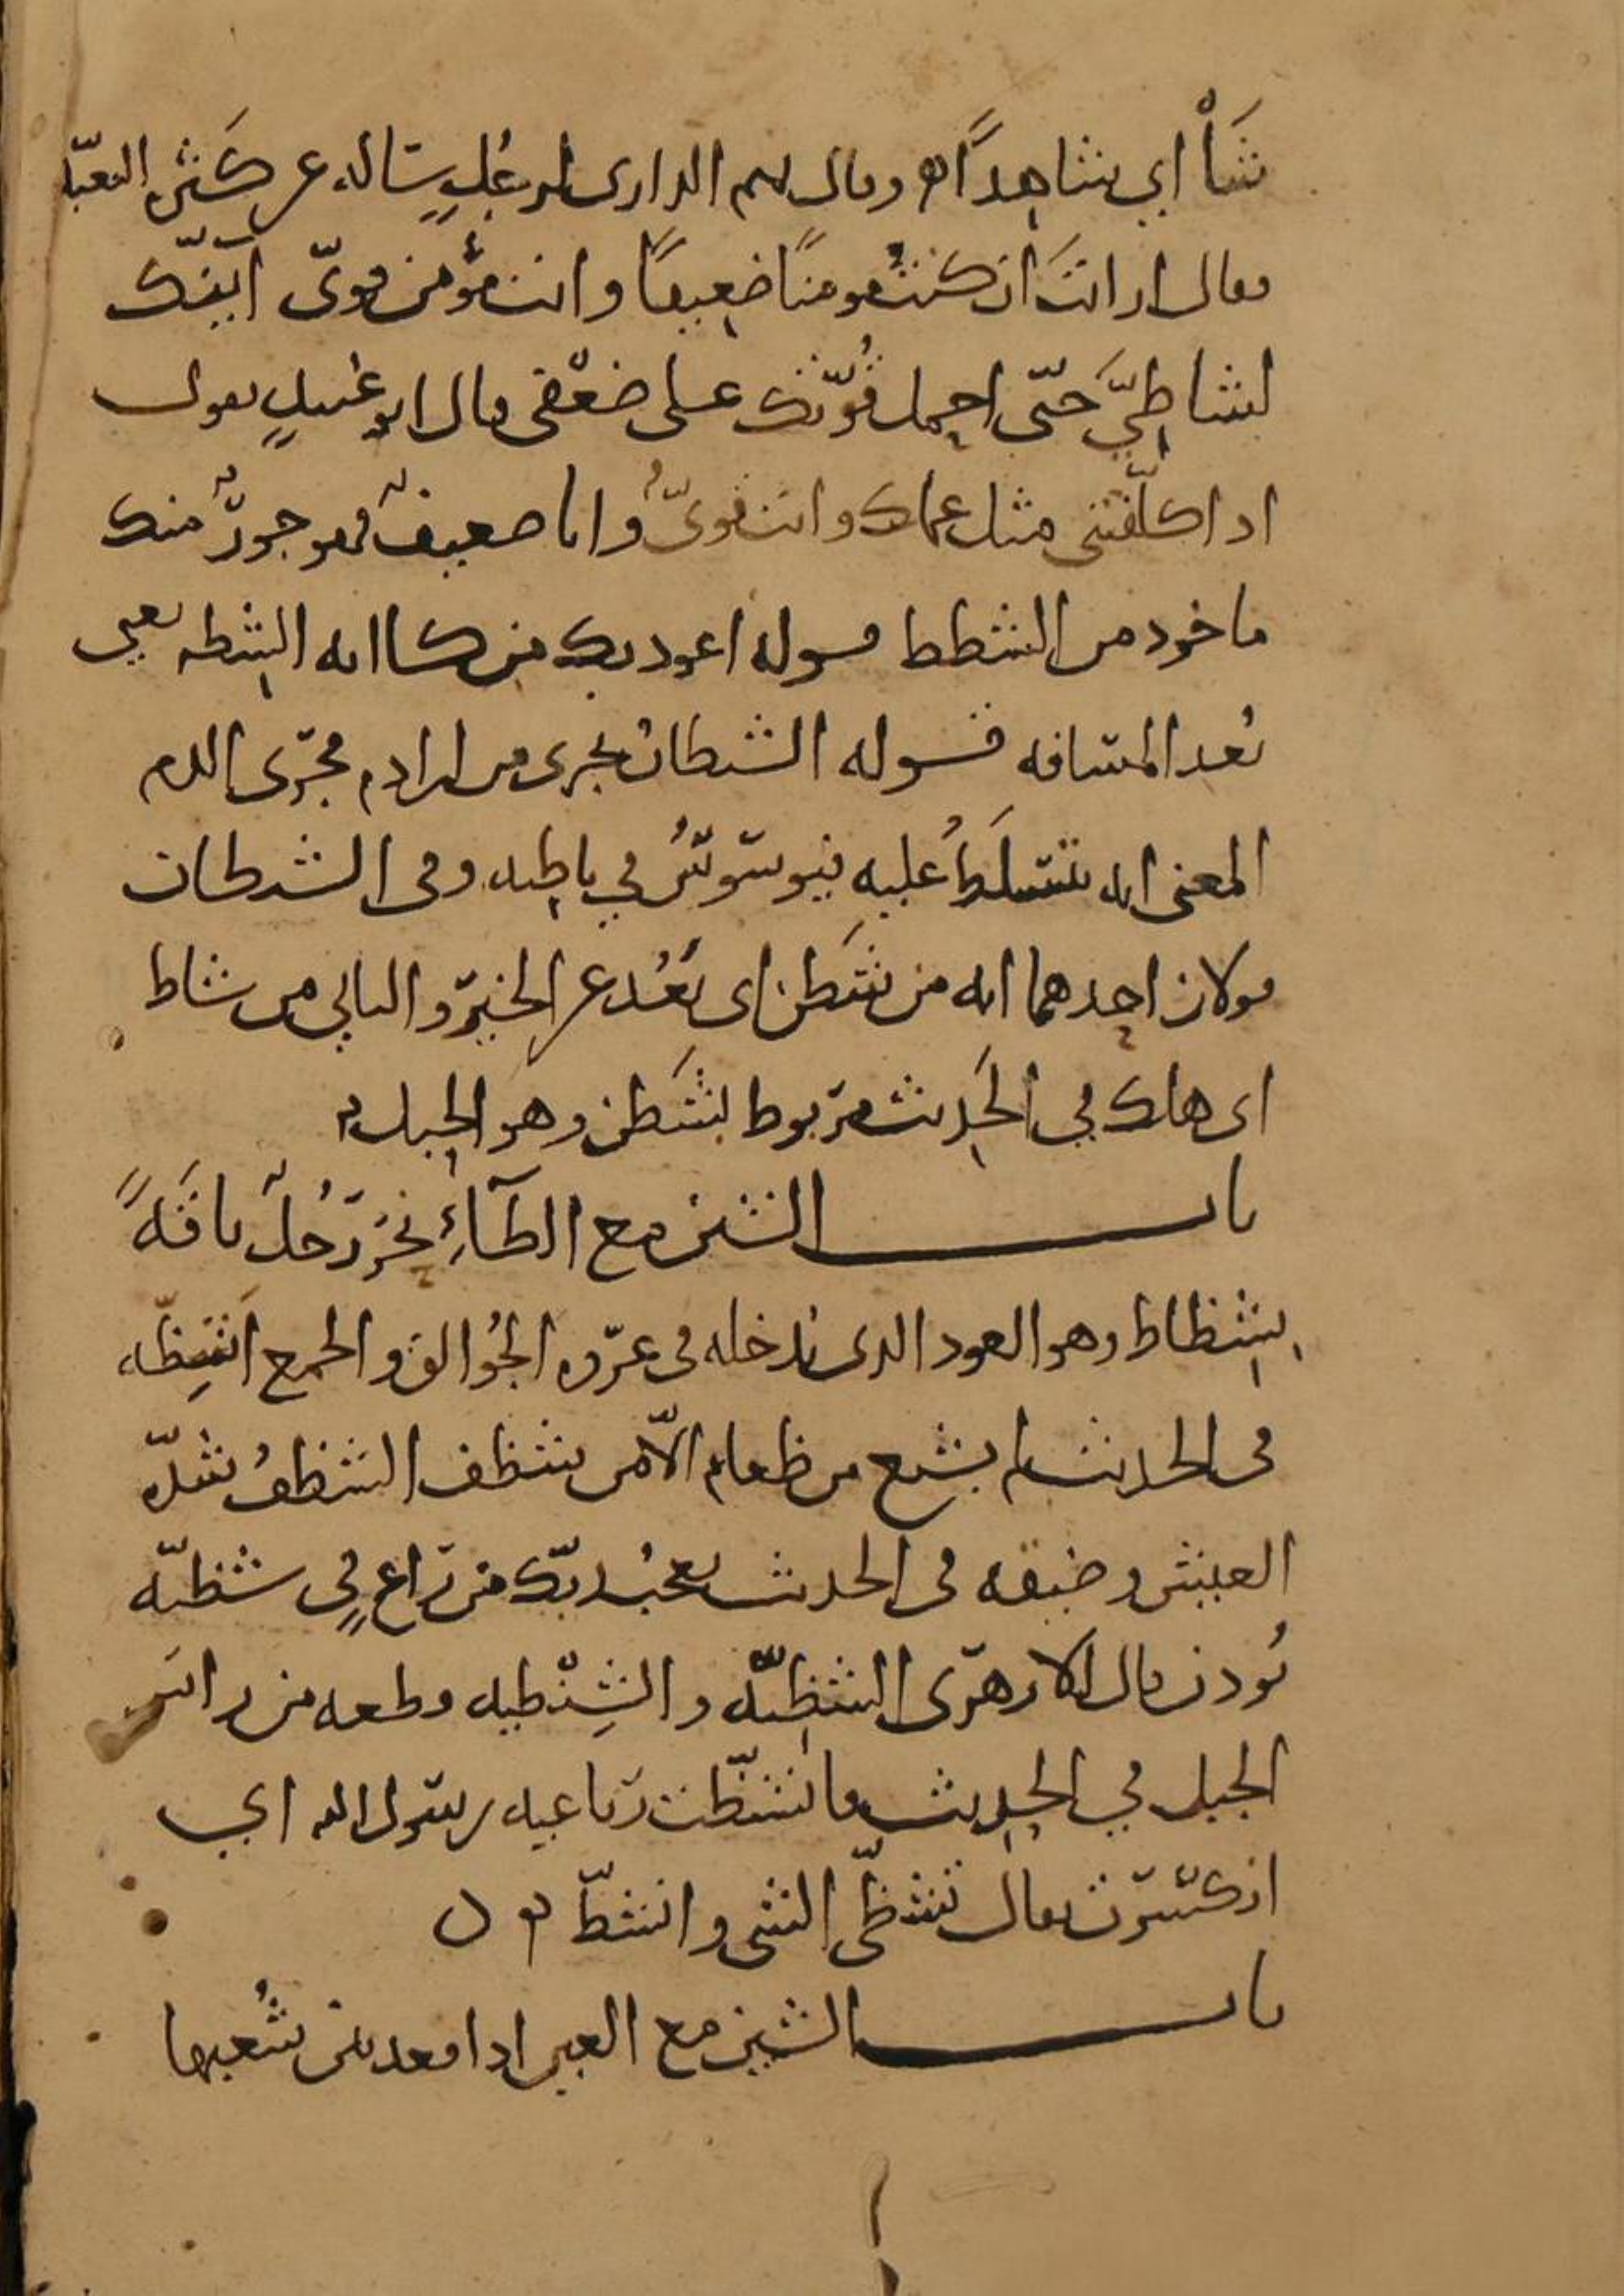 شَأْ أي شاهدًا وقال تميم الداري لرجلٍ سأله عن كثرة التعبّد
فقال ارأيتَ ان كنتُ مومنًا ضعيفًا وانت مؤمن قويّ أئنّك
لشاطِيَّ حتّى احمل قُوّتك على ضعْفي قال ابو عُبيدٍ يقول
اذا كلّفتني مثل عملك وانت قويٌّ وانا ضعيفٌ فهو جورٌ منك
ماخوذ من الشطط قوله اعوذ بك من كآبه الشِطه يعني
بُعد المسافه قوله الشيطانُ يجرى من ابن ادم مجرى الدم
المعنى انه يتسلطُ عليه فيوسوسُ في باطنه وفى الشيطان
قولان احدهما انه من شَطَن اى بَعُد عن الخير والثاني من شاط
اى هلك في الحَديث مربوط بشَطَن وهو الحبل
باب الشين مع الظآءِ نحَر رَجُلٌ ناقَهً
بِشِظاظ وهو العود الذى يُدخله فى عروه الجُوالق والجمع اشِظّه
فى الحديث لم يشبع من طعام الّا من شظف الشظفُ شدّه
العيش وضيقه فى الحديث يعجبُ ربّك من راعٍ في شظيّه
يُوذن قال الازهرى الشظِيّه والشِنْظيه قطعه من راس
الجبل في الحديث فانشظّت رباعيه رسول الله اي
انكسرت يقال تشظّى الشى وانشظّ
باب الشين مع العين اذا قعد بين شُعبها